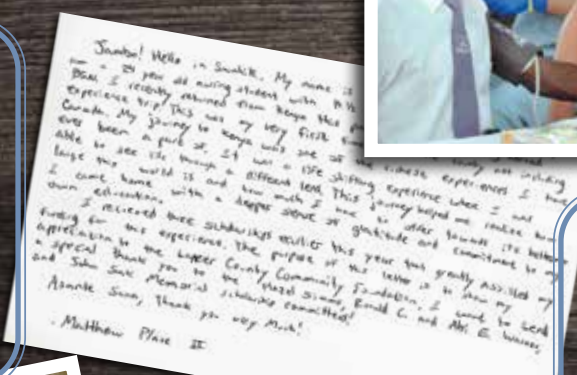 Jambo! Hello in Swahili. My name is
am a year old nursing student with
BSN. I recently returned from Kenya this
experience trip! This was my very first time not including
Canada. My journey to Kenya was one of the richest experiences I have
ever been a part of. It was a life shifting experience when I was
able to see life through a different lens. This journey helped me realize how
large this world is and how much I have to offer towards its
I came home with a deeper sense of gratitude and commitment to my
own education.
I recieved three scholarships earlier this year that greatly assisted my
funding for this experience. The purpose of this letter is to show my
appreciation to the Lapeer County Community Foundation. I want to send
a special thank you to the Hazel Simms, Ronald C. and E. Warner,
and John Memorial scholarship committees!
Asante Sana, Thank you very Much!
- Matthew II